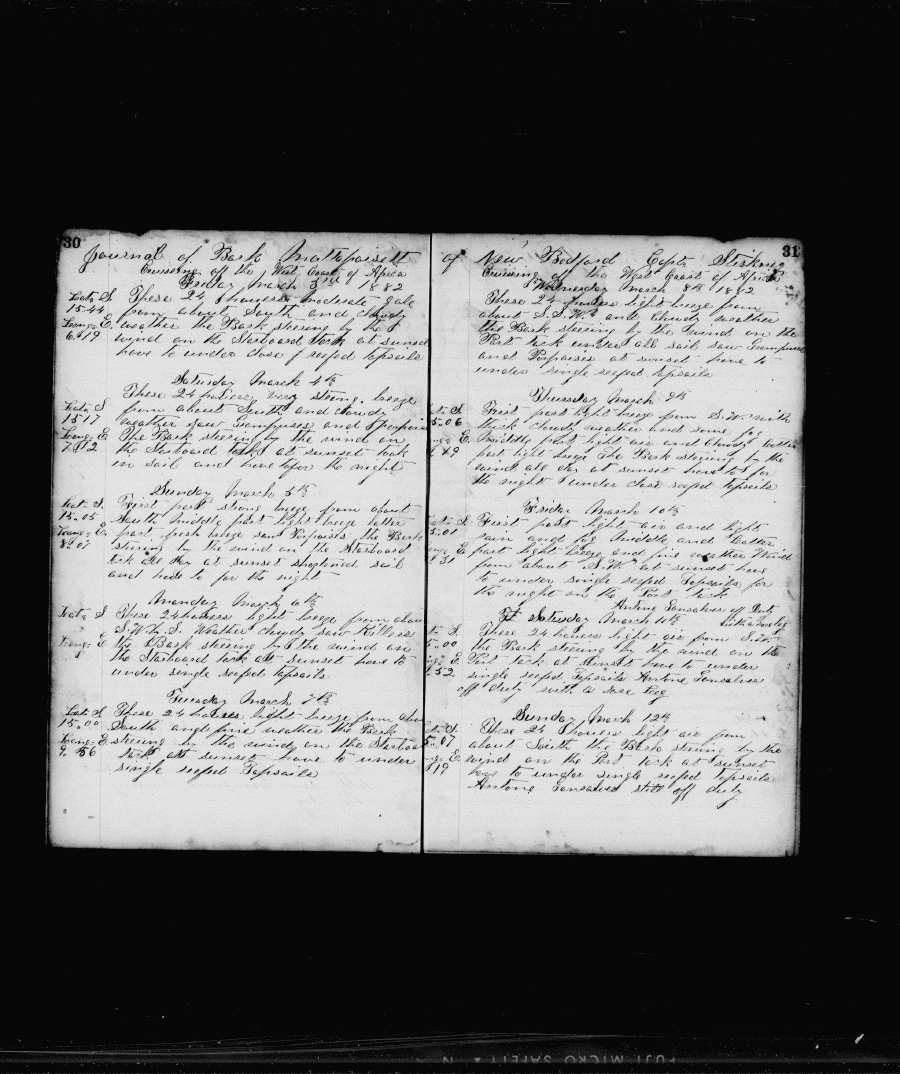 30
Journal of Bark Mattapoisett
Cruiseing off the West Coast of Africa
Friday March 3rd 1882
Lat. S These 24 houers moderate gale
15-44 from about South and cloudy
Long. E. weather the Bark steering by the
6.19 wind on the Starboard tack at sunset
have to under close reeped topsails
Saturday March 4th
These 24 houers very strong breeze
Lat. S from about South and cloudy
15-17 weather saw Grampuses and Porpoises
Long. E The Bark steering by the wind on
7. the Starboard tack at sunset took
in sail and have to for the night
Sunday March 5th
Lat. S. First part strong breeze from about
15-05 South middle part light breeze latter
Long. E part fresh breeze saw Porpoises the Bark
8-01 steering by the wind on the Starboard
tack all day at sunset shortened sail
and have to for the night
Monday March 6th
Lat. S These 24 houers light breeze from about
S.W.by.S. Weather cloudy saw Killers
Long. E the Bark steering by the wind on
the Starboard tack att sunset have to
under single reeped topsails
Tuesday March 7th
Lat. S These 24 houers light breeze from about
15-00 South and fine weather the Bark
Long. E steering by the wind on the Starboard
9.56 tack att sunset have to under
single reeped Topsails
31
of New Bedford Capt.
Cruising off the West Coast of Africa
Wednesday March 8th 1882
These 24 houers light breeze from
about S.S.W. and Cloudy weather
the Bark steering by the wind on the
Port tack under all sail saw Grampuses
and Porpoises at sunset have to
under single reeped topsails
Thursday March 9th
S. First part light breeze from S.W. with
5-06 thick cloudy weather and some fog
E. middle part light air and cloudy latter
49 part light breeze The Bark steering by the
wind all day at sunset have to for
the night under close reeped topsails
Friday March 10th
S. First part light air and light
5-01 rain and fog middle and latter
E part light breeze and fine weather Wind
31 from about S.W. at sunset have
to under single reeped Topsails for
the night on the Port tack
Antone Gonsalves off Duty
Saturday March 11th
S. These 24 houers light air from S.W.
5-00 the Bark steering by the wind on the
E. Port tack at sunset have to under
52 single reeped Topsails Antone Gonsalves
off duty with a sore leg
Sunday March 12th
S. These 24 houers light air from
5-07 about South the Bark steering by the
E. wind on the Port tack at sunset
19 have to under single reeped topsails
Antone Gonsalves still off duty
FUJI MICRO SAFETY